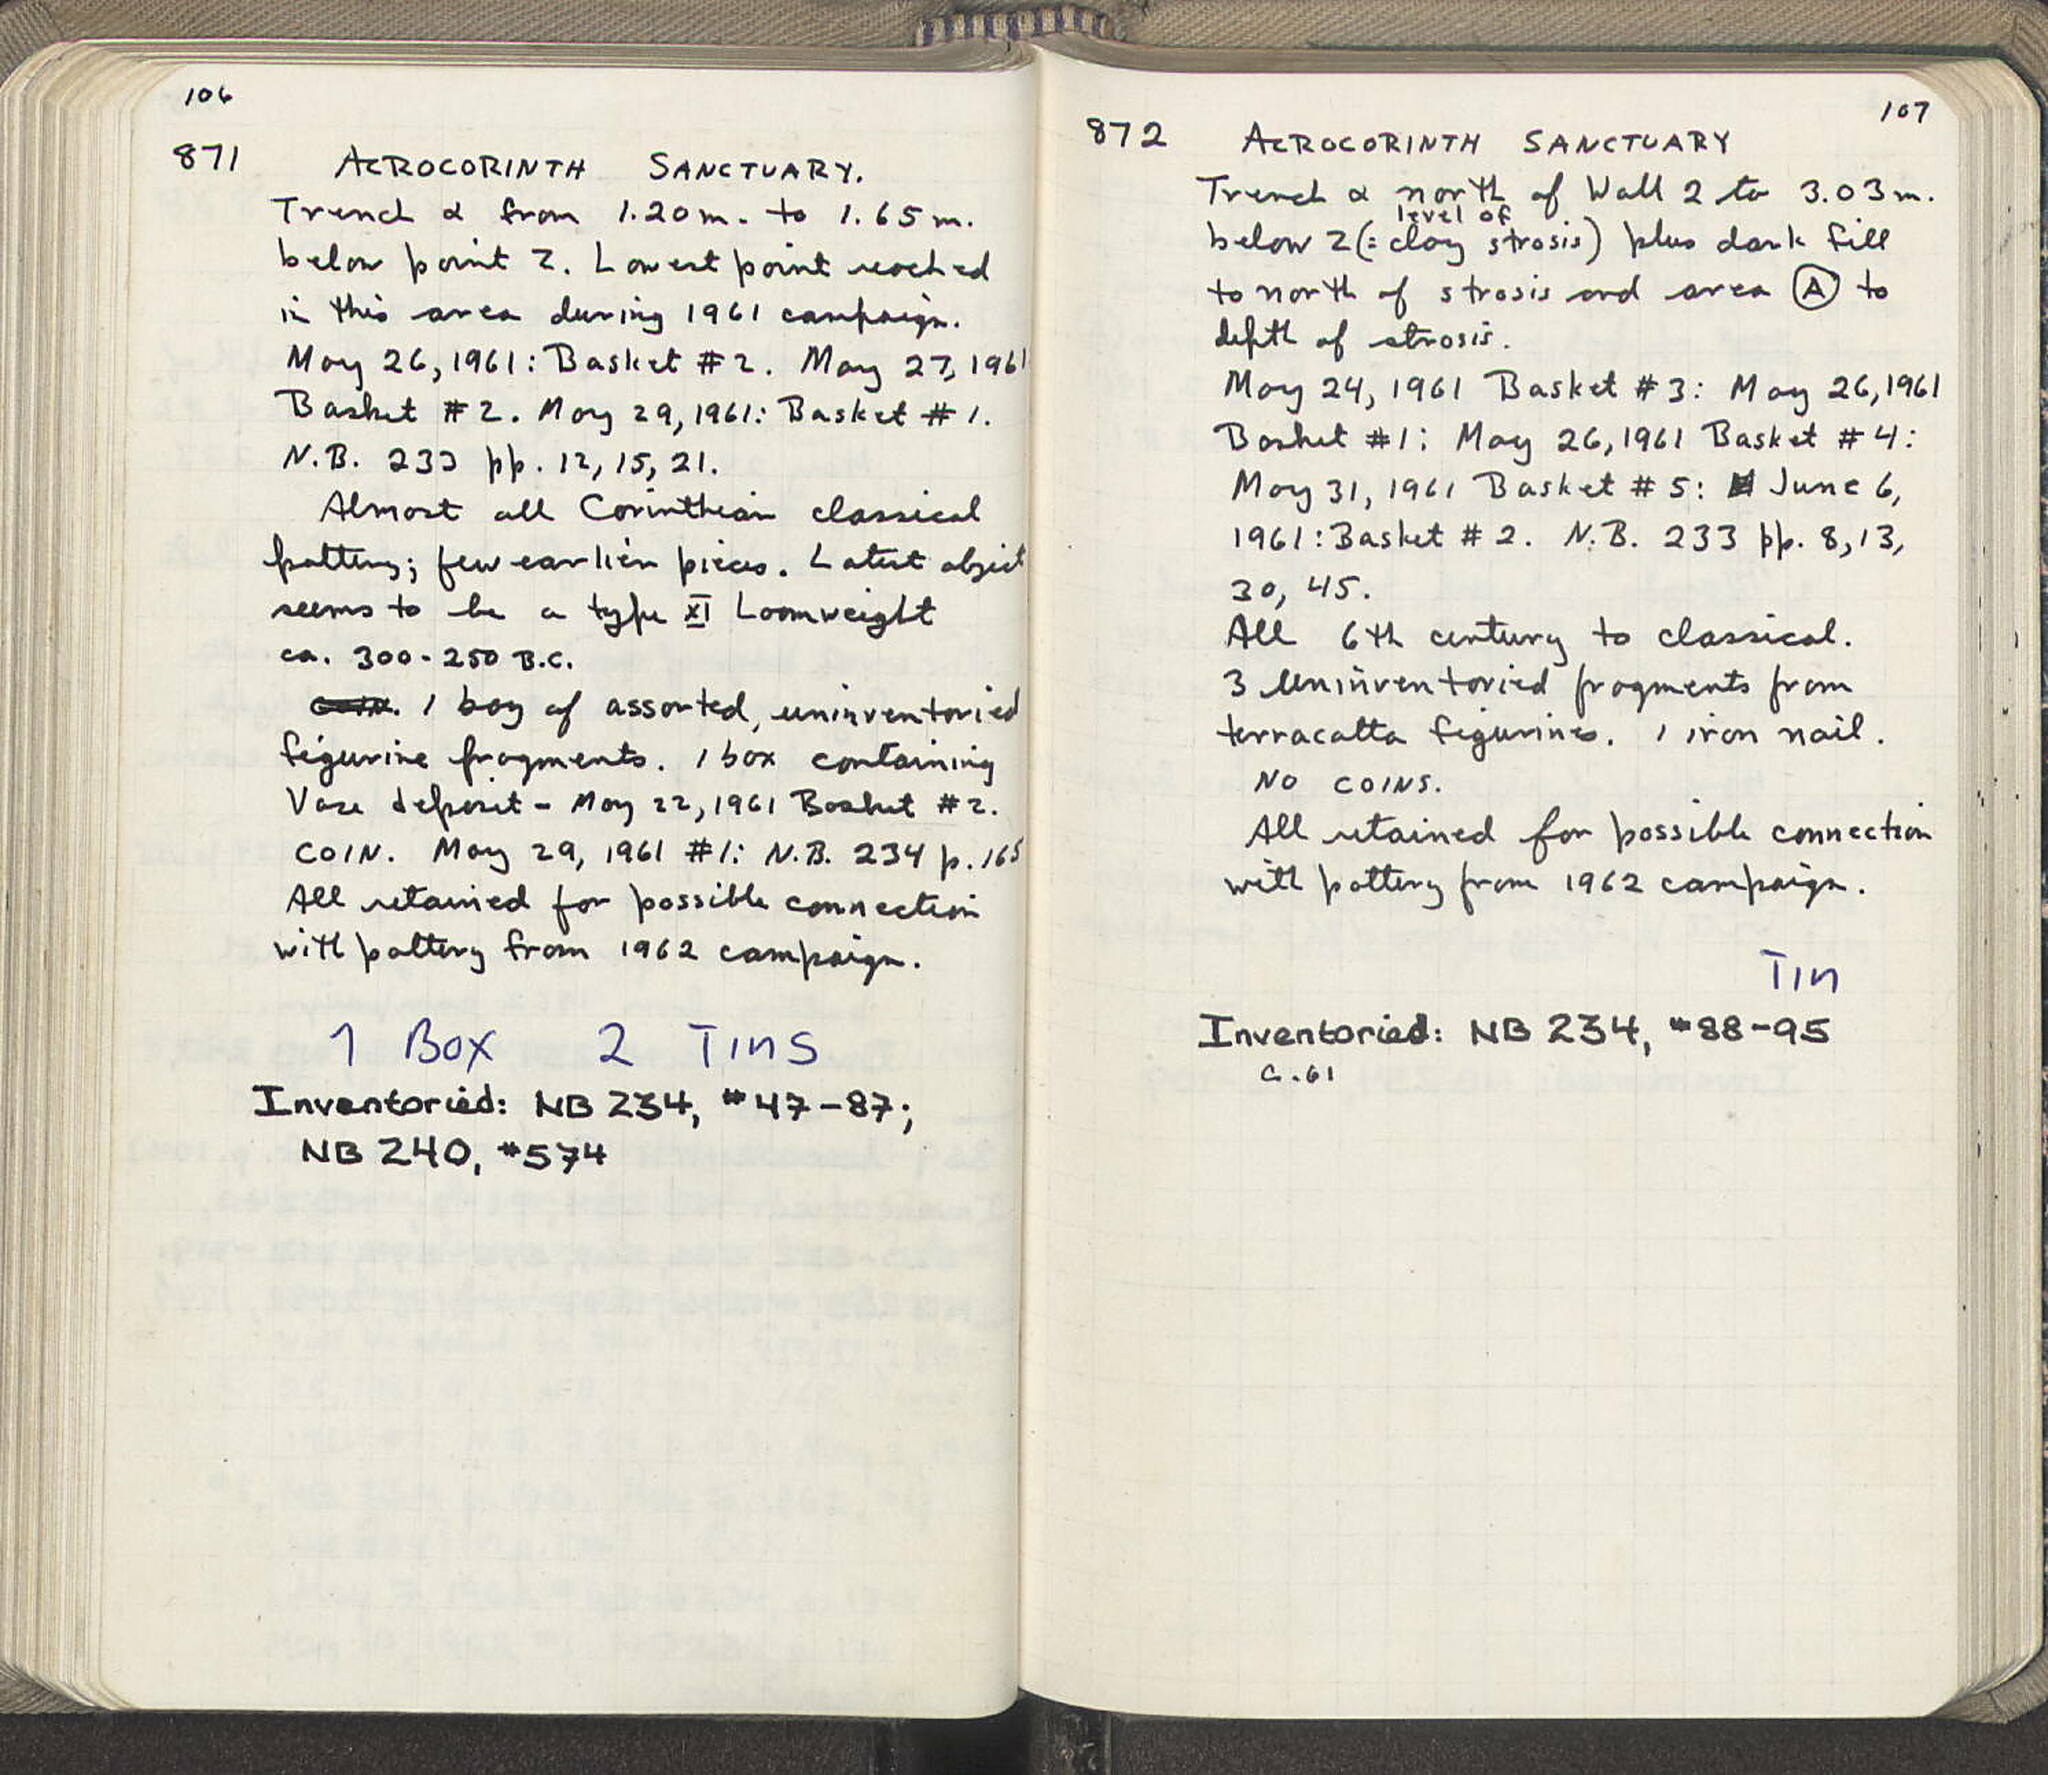 106
871 ACROCORINTH SANCTUARY.
Trench α from 1.20m. to 1.65m.
below point Z. Lowest point reached
in this area during 1961 campaign.
May 26, 1961: Basket #2. May 27, 1961
Basket #2. May 29, 1961: Basket #1.
N.B. 233 pp. 12, 15, 21.
Almost all Corinthian classical
pottery; few earlier pieces. Latest object
seems to be a type XI Loomweight
ca. 300-250 B.C.
1 bag of assorted, uninventoried
figurine fragments. 1 box containing
Vase deposit - May 22, 1961 Basket #2.
COIN. May 29, 1961 #1: N.B. 234 p. 165
All retained for possible connection
with pottery from 1962 campaign.
1 Box 2 Tins
Inventoried: NB 234, #47-87;
NB 240, #574
107
872 ACROCORINTH SANCTUARY
Trench α north of Wall 2 to 3.03m.
level of
below Z (= clay strosis) plus dark fill
to north of strosis and area A to
depth of strosis.
May 24, 1961 Basket #3: May 26, 1961
Basket #1: May 26, 1961 Basket #4:
May 31, 1961 Basket #5: June 6,
1961: Basket #2. N.B. 233 pp. 8, 13,
30, 45.
All 6th century to classical.
3 Uninventoried fragments from
terracotta figurines. 1 iron nail.
NO COINS.
All retained for possible connection
with pottery from 1962 campaign.
Tin
Inventoried: NB 234, #88-95